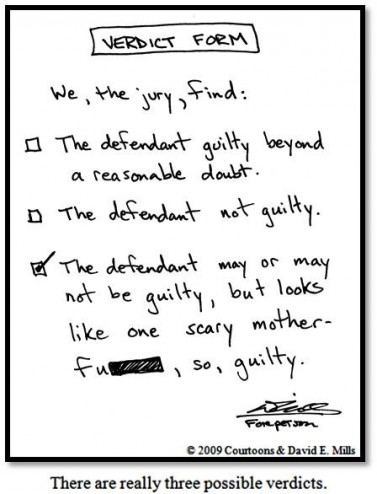 VERDICT FORM
We, the jury, find:
The defendant guilty beyond
a reasonable doubt.
The defendant not guilty.
The defendant may or may
not be guilty, but looks
like one scary mother-
fu , so, guilty.
Foreperson
© 2009 Courtoons & David E. Mills
There are really three possible verdicts.